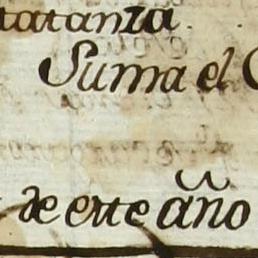 tatanza.
Suma el
de este año